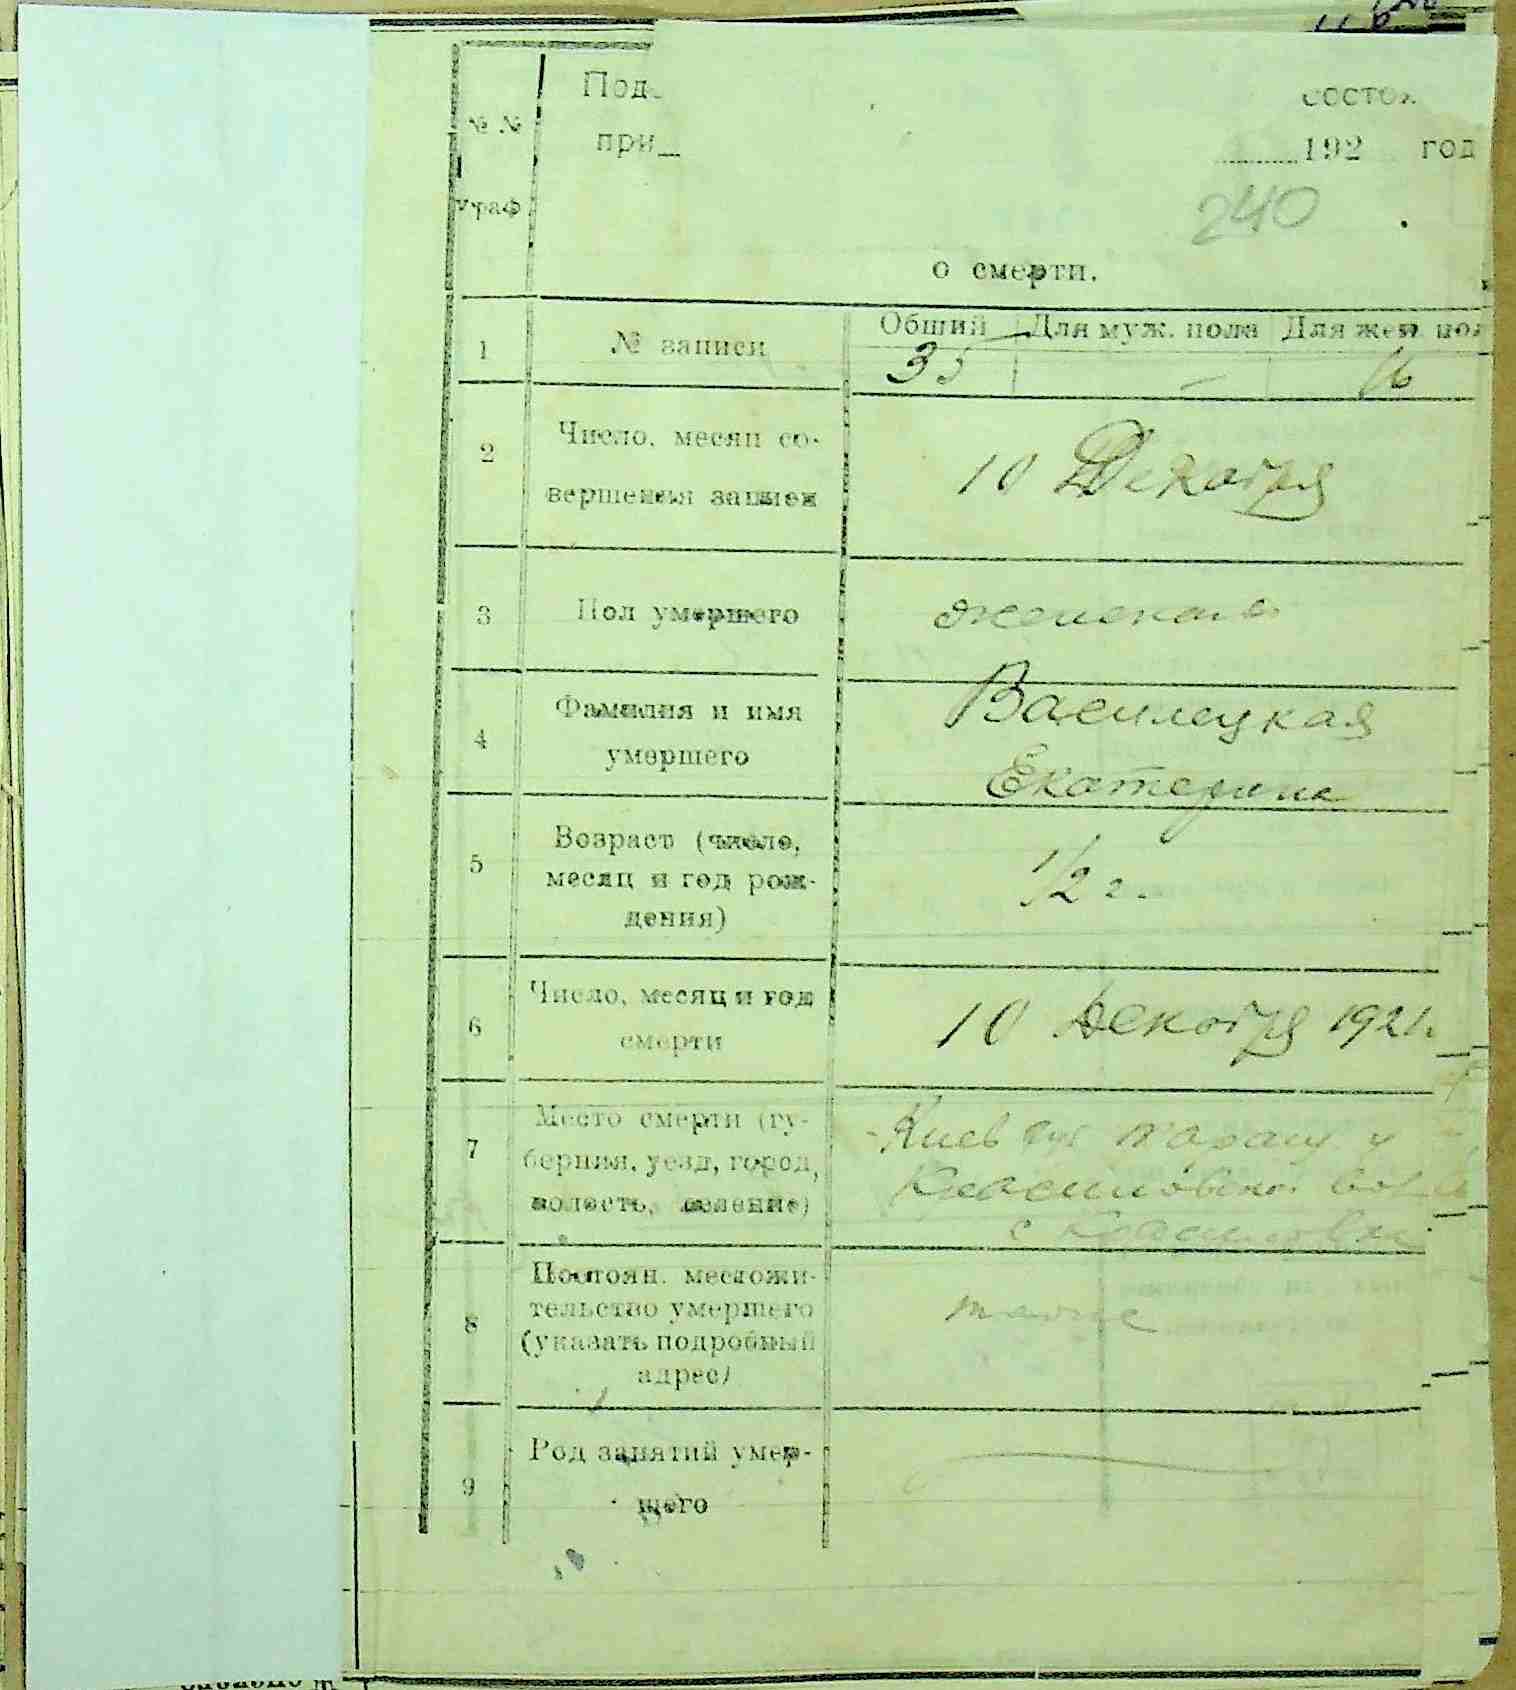 № №
граф
Под
состоя
при
192 год
240
о смерти.
1
№ записи
Общий Для муж. пола Для жен. пол
35 – 16
2
Число, месяц со-
вершения записи
10 Декабря
3
Пол умершего
женская
4
Фамилия и имя
умершего
Василецкая
Екатерина
5
Возраст (число,
месяц и год рож-
дения)
1/2 г.
6
Число, месяц и год
смерти
10 Декабря 1921.
7
Место смерти (гу-
берния, уезд, город,
волость, селение)
Киев губ
с Красиловка
8
Постоян. местожи-
тельство умершего
(указать подробный
адрес)
тоже
9
Род занятий умер-
шего